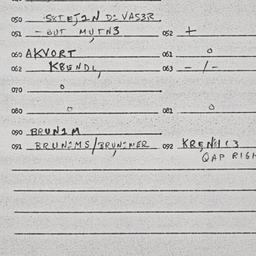 050 SKTEJ2N D: VAS3R
051 - BUT MUTN3 052 +
060 AKVORT 061 0
062 K8ENDL, 063 - / -
070 0
080 0 081 0
090 BRUN2M
091 BRUN:MS/BRUN:MER 092
QAP RIGH